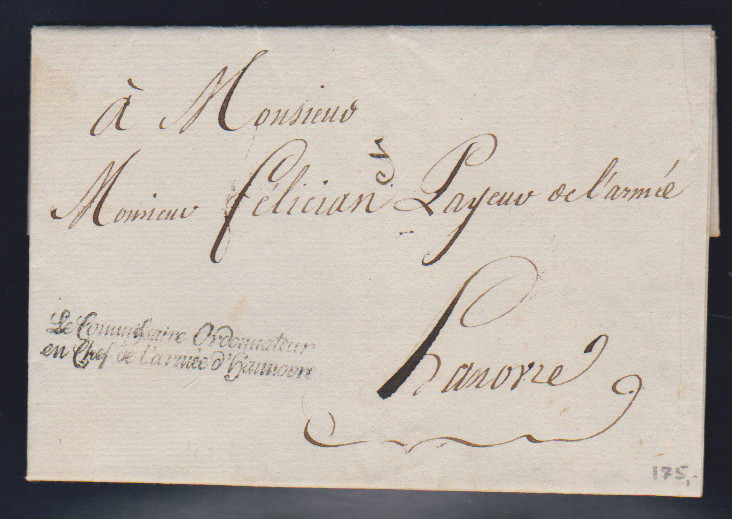 à Monsieur
Monsieur Félician Payeur de l'armée
Hanovre
Le Commissaire Ordonnateur
en Chef de l'armée d'Hannovre
175,-